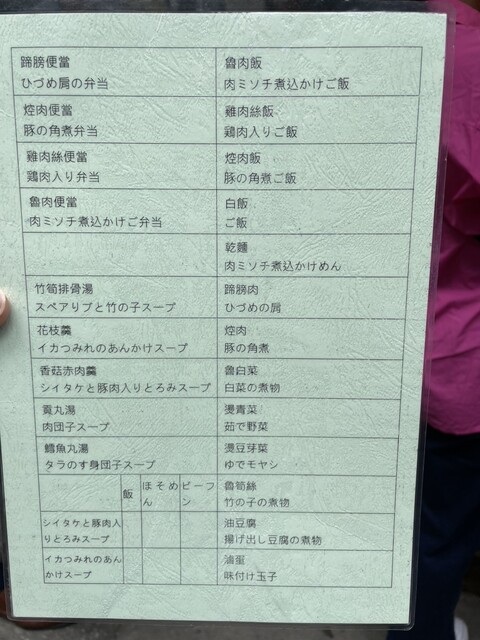 蹄膀便當
ひづめ肩の弁当
魯肉飯
肉ミソチ煮込かけご飯
焢肉便當
豚の角煮弁当
雞肉絲飯
鶏肉入りご飯
雞肉絲便當
鶏肉入り弁当
焢肉飯
豚の角煮ご飯
魯肉便當
肉ミソチ煮込かけご弁当
白飯
ご飯
乾麵
肉ミソチ煮込かけめん
竹筍排骨湯
スペアリブと竹の子スープ
蹄膀肉
ひづめの肩
花枝羹
イカつみれのあんかけスープ
焢肉
豚の角煮
香菇赤肉羹
シイタケと豚肉入りとろみスープ
魯白菜
白菜の煮物
貢丸湯
肉団子スープ
燙青菜
茹で野菜
鱈魚丸湯
タラのす身団子スープ
燙豆芽菜
ゆでモヤシ
飯
ほそめん
ビーフン
魯筍絲
竹の子の煮物
シイタケと豚肉入
りとろみスープ
油豆腐
揚げ出し豆腐の煮物
イカつみれのあん
かけスープ
滷蛋
味付け玉子